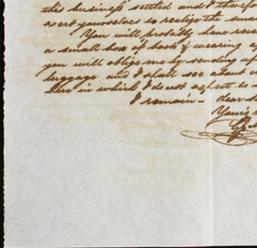 this business settled and I therefore
exert yourselves to realize the
You will probably have
a small box of
you will oblige me by sending
luggage and I shall see about
in which I do not expect to
I remain - dear
Yours